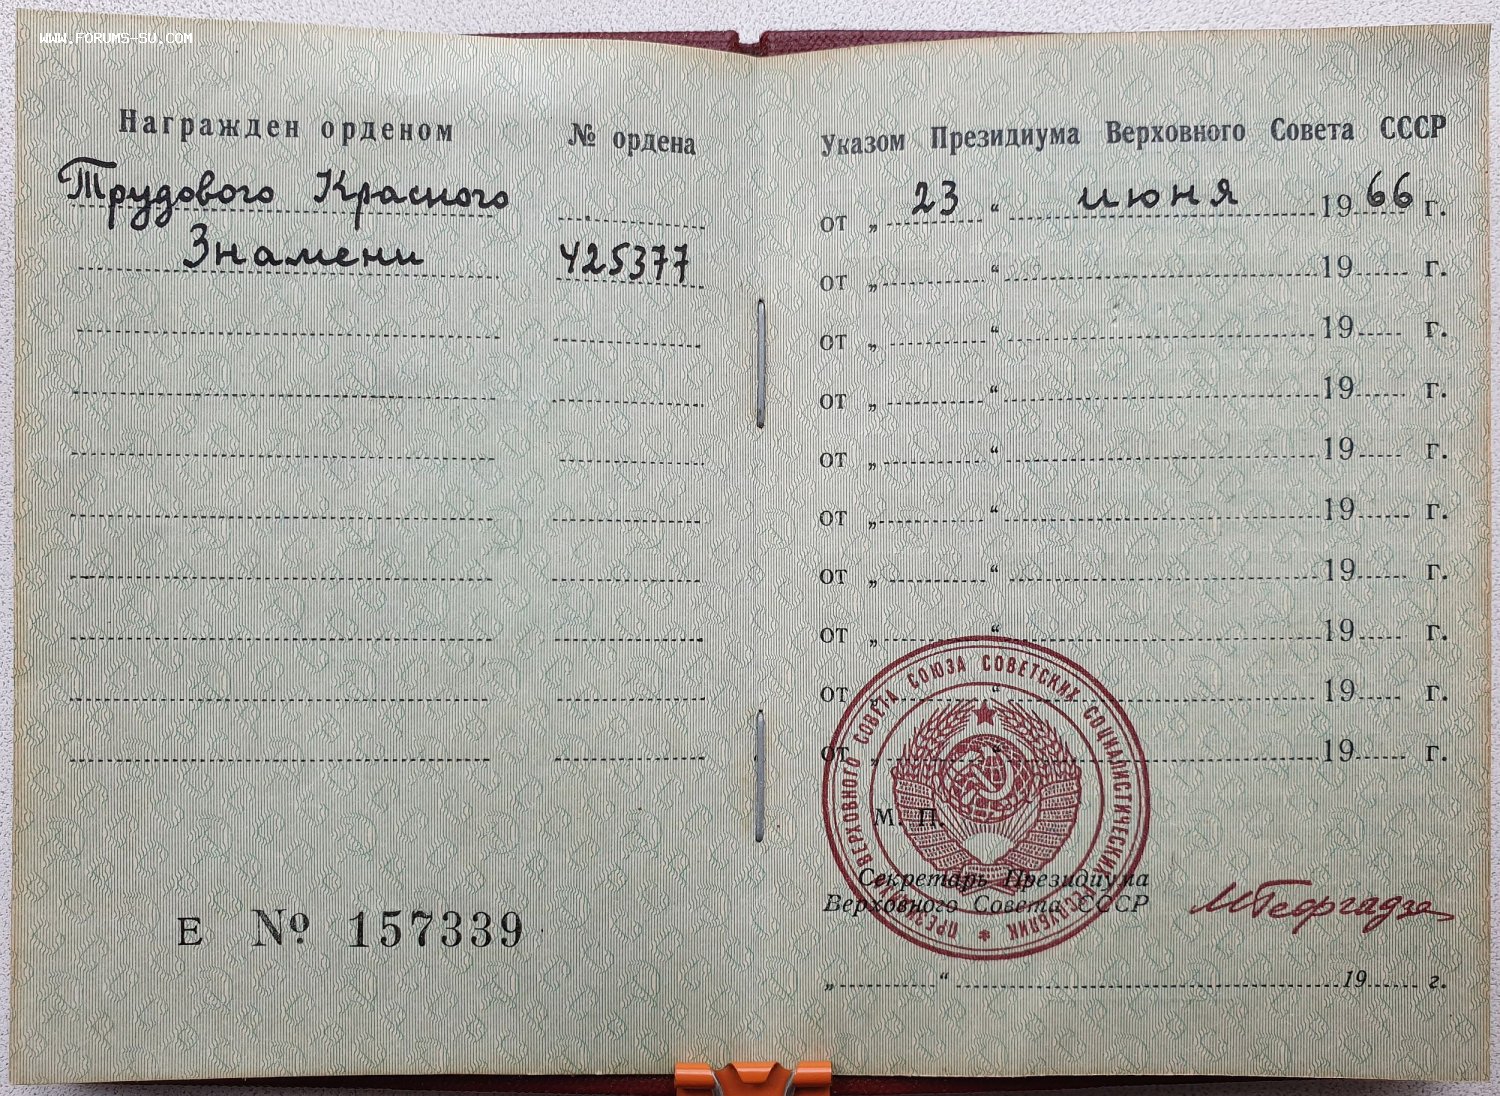 WWW.FORUMS-SU.COM
Награжден орденом
№ ордена
Трудового Красного
Знамени
425377
Е № 157339
Указом Президиума Верховного Совета СССР
от „ 23 “ июня 1966 г.
от „ “ 19 г.
от „ “ 19 г.
от „ “ 19 г.
от „ “ 19 г.
от „ “ 19 г.
от „ “ 19 г.
от „ “ 19 г.
от „ “ 19 г.
от „ “ 19 г.
М. П.
ПРЕЗИДИУМ ВЕРХОВНОГО СОВЕТА СОЮЗА СОВЕТСКИХ СОЦИАЛИСТИЧЕСКИХ РЕСПУБЛИК
Секретарь Президиума
Верховного Совета СССР
МГеоргадзе
„ “ 19 г.